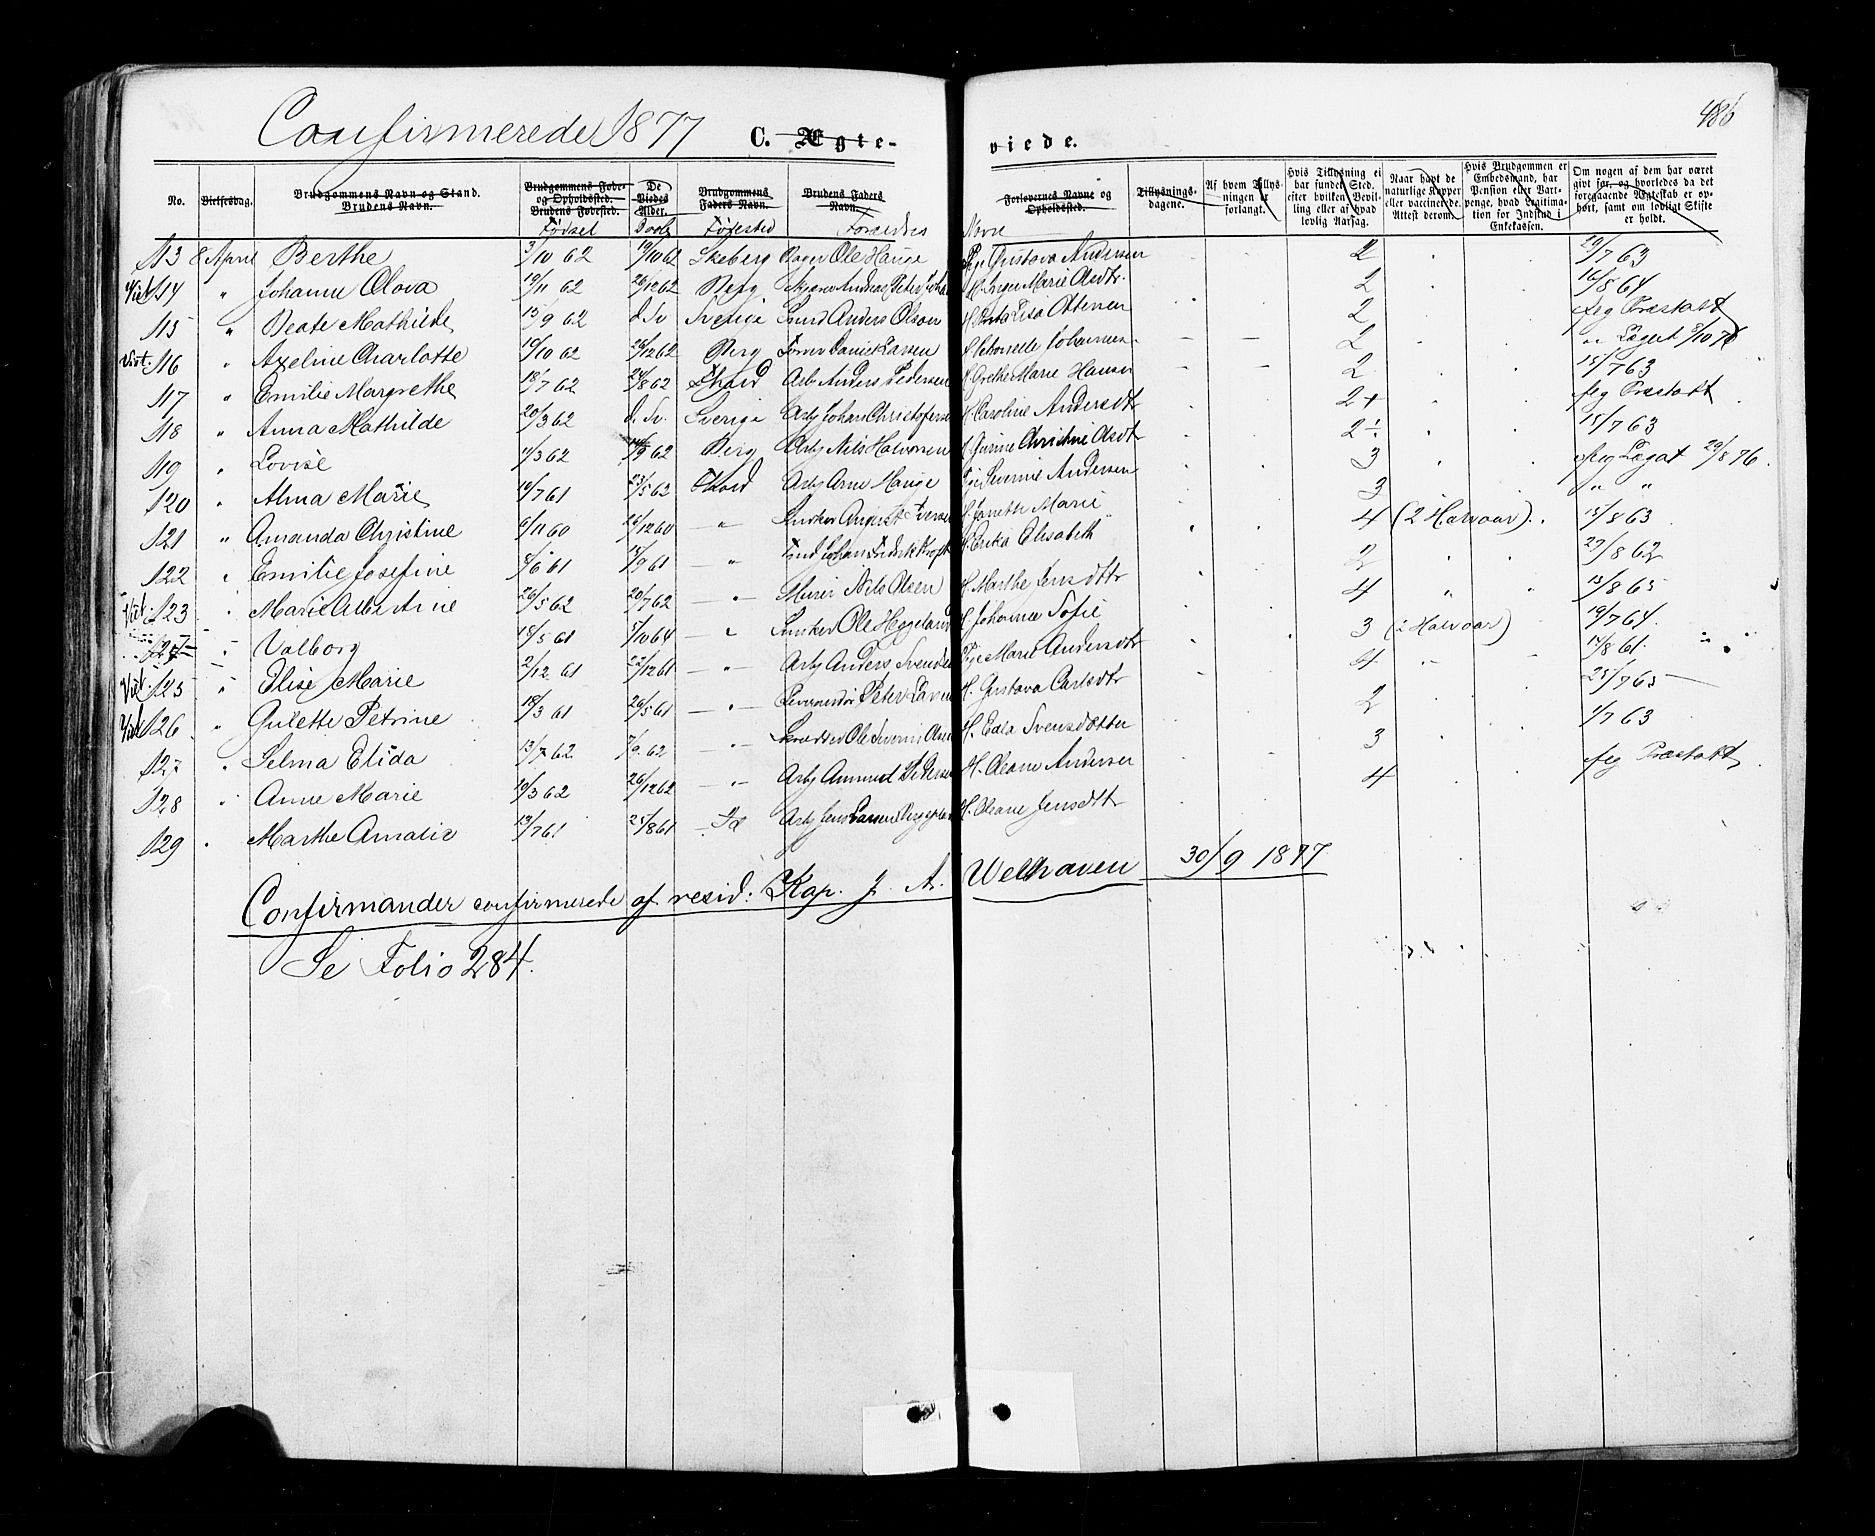 Confirmerede 1877 C. Ægte- viede. 486
No. Vielsesdag. Brudgommens Navn og Stand. Brudens Navn. Brudgommens Føde- og Opholdssted. Brudens Fødested. De Viedes Alder. Brudgommens Faders Navn. Brudens Faders Navn. Forlovernes Navne og Opholdssted. Tillysnings-dagene. Af hvem Tillysningen er forlangt. Hvis Tillysning ei har fundet Sted, efter hvilken Bevilling eller af hvad lovlig Aarsag. Naar havt de naturlige Kopper eller vaccinerede. Attest derom. Hvis Brudgommen er Embedsmand, har Pension eller Vartpenge, hvad Legitimation for Indskud i Enkekassen. Om nogen af dem har været givt før, og hvorledes da det foregaaende Ægteskab er ophørt, samt om lodligt Skifte er holdt.
Fødsel Daab Fødested Forældres Navne
113 8 April Berthe 3/10 62 19/10 62 Skeberg Ole Hauge Pige Gustava Andersen 2 29/7 63
Viet 114 " Johanne Olava 19/11 62 26/12 62 Berg Andreas Peter H. Inger Marie Olsdtr. 2 16/8 64
115 " Beate Mathilde 15/9 62 d. Sv. Sverige Anders Olsen Lisa Ottersen 2 flg Præstatt
Viet. 116 " Axeline Charlotte 19/10 62 26/12 62 Berg Daniel Larsen H. Petronelle Johannesen 2 " Lægat
117 " Emilie Margrethe 18/7 62 24/8 62 Fhald Arb Anders Pedersen H. Grethe Marie Hansen 2 15/7 63
118 " Anna Mathilde 20/3 62 d. Sv. Sverige Arb Johan Christofersen H. Caroline Andersdtr 2+ flg Præstatt
119 " Lovise 11/3 62 Berg Arb Nils Halvorsen H. Gurine Christine Olsdtr 2÷ 15/7 63
120 " Alma Marie 10/7 61 23/5 62 Fhald Arb Arne Hauge Andersen 3 flg Lægat 29/8 76
121 " Amanda Christine 6/11 60 26/12 60 " Snedker August Iversen H. Janette Marie 3 " "
122 " Emilie Josefine 5/6 61 15/9 61 " Johan H. Erika Elisabeth 4 (2 Halvaar) 15/8 63
Viet 123 " Marie Albertine 26/5 62 20/7 62 " Murer Nils Olsen H. Marthe Jensdttr 2 27/8 62
124 " Valborg 18/5 61 5/10 64 " Snedker Ole Heggeland H. Johanne Sofie 4 " 13/8 65
Viet 125 " Elise Marie 2/12 61 22/12 61 " Arb Anders Svendsen Pige Marie Andersdtr 3 (2 Halvaar) 19/7 64
Viet 126 " Gulette Petrine 18/3 61 26/5 61 " Peter Larsen H. Gustava Carlsdtr 4 14/8 61
127 " Selma Elida 13/7 62 7/9 62 " Ole H. Edla Svensdotter 2 25/7 65
128 " Anne Marie 10/3 62 26/12 62 " Arb Amund Pedersen H. Oleane Andersen 3 1/7 63
129 " Marthe Amalie 13/7 61 25/8 61 Id Arb Jens Larsen H. Oleane Jensdtr 4 flg Præstatt
Confirmander confirmerede af resid: Kap. J. A. Welhaven 30/9 1877
Se Folio 284.